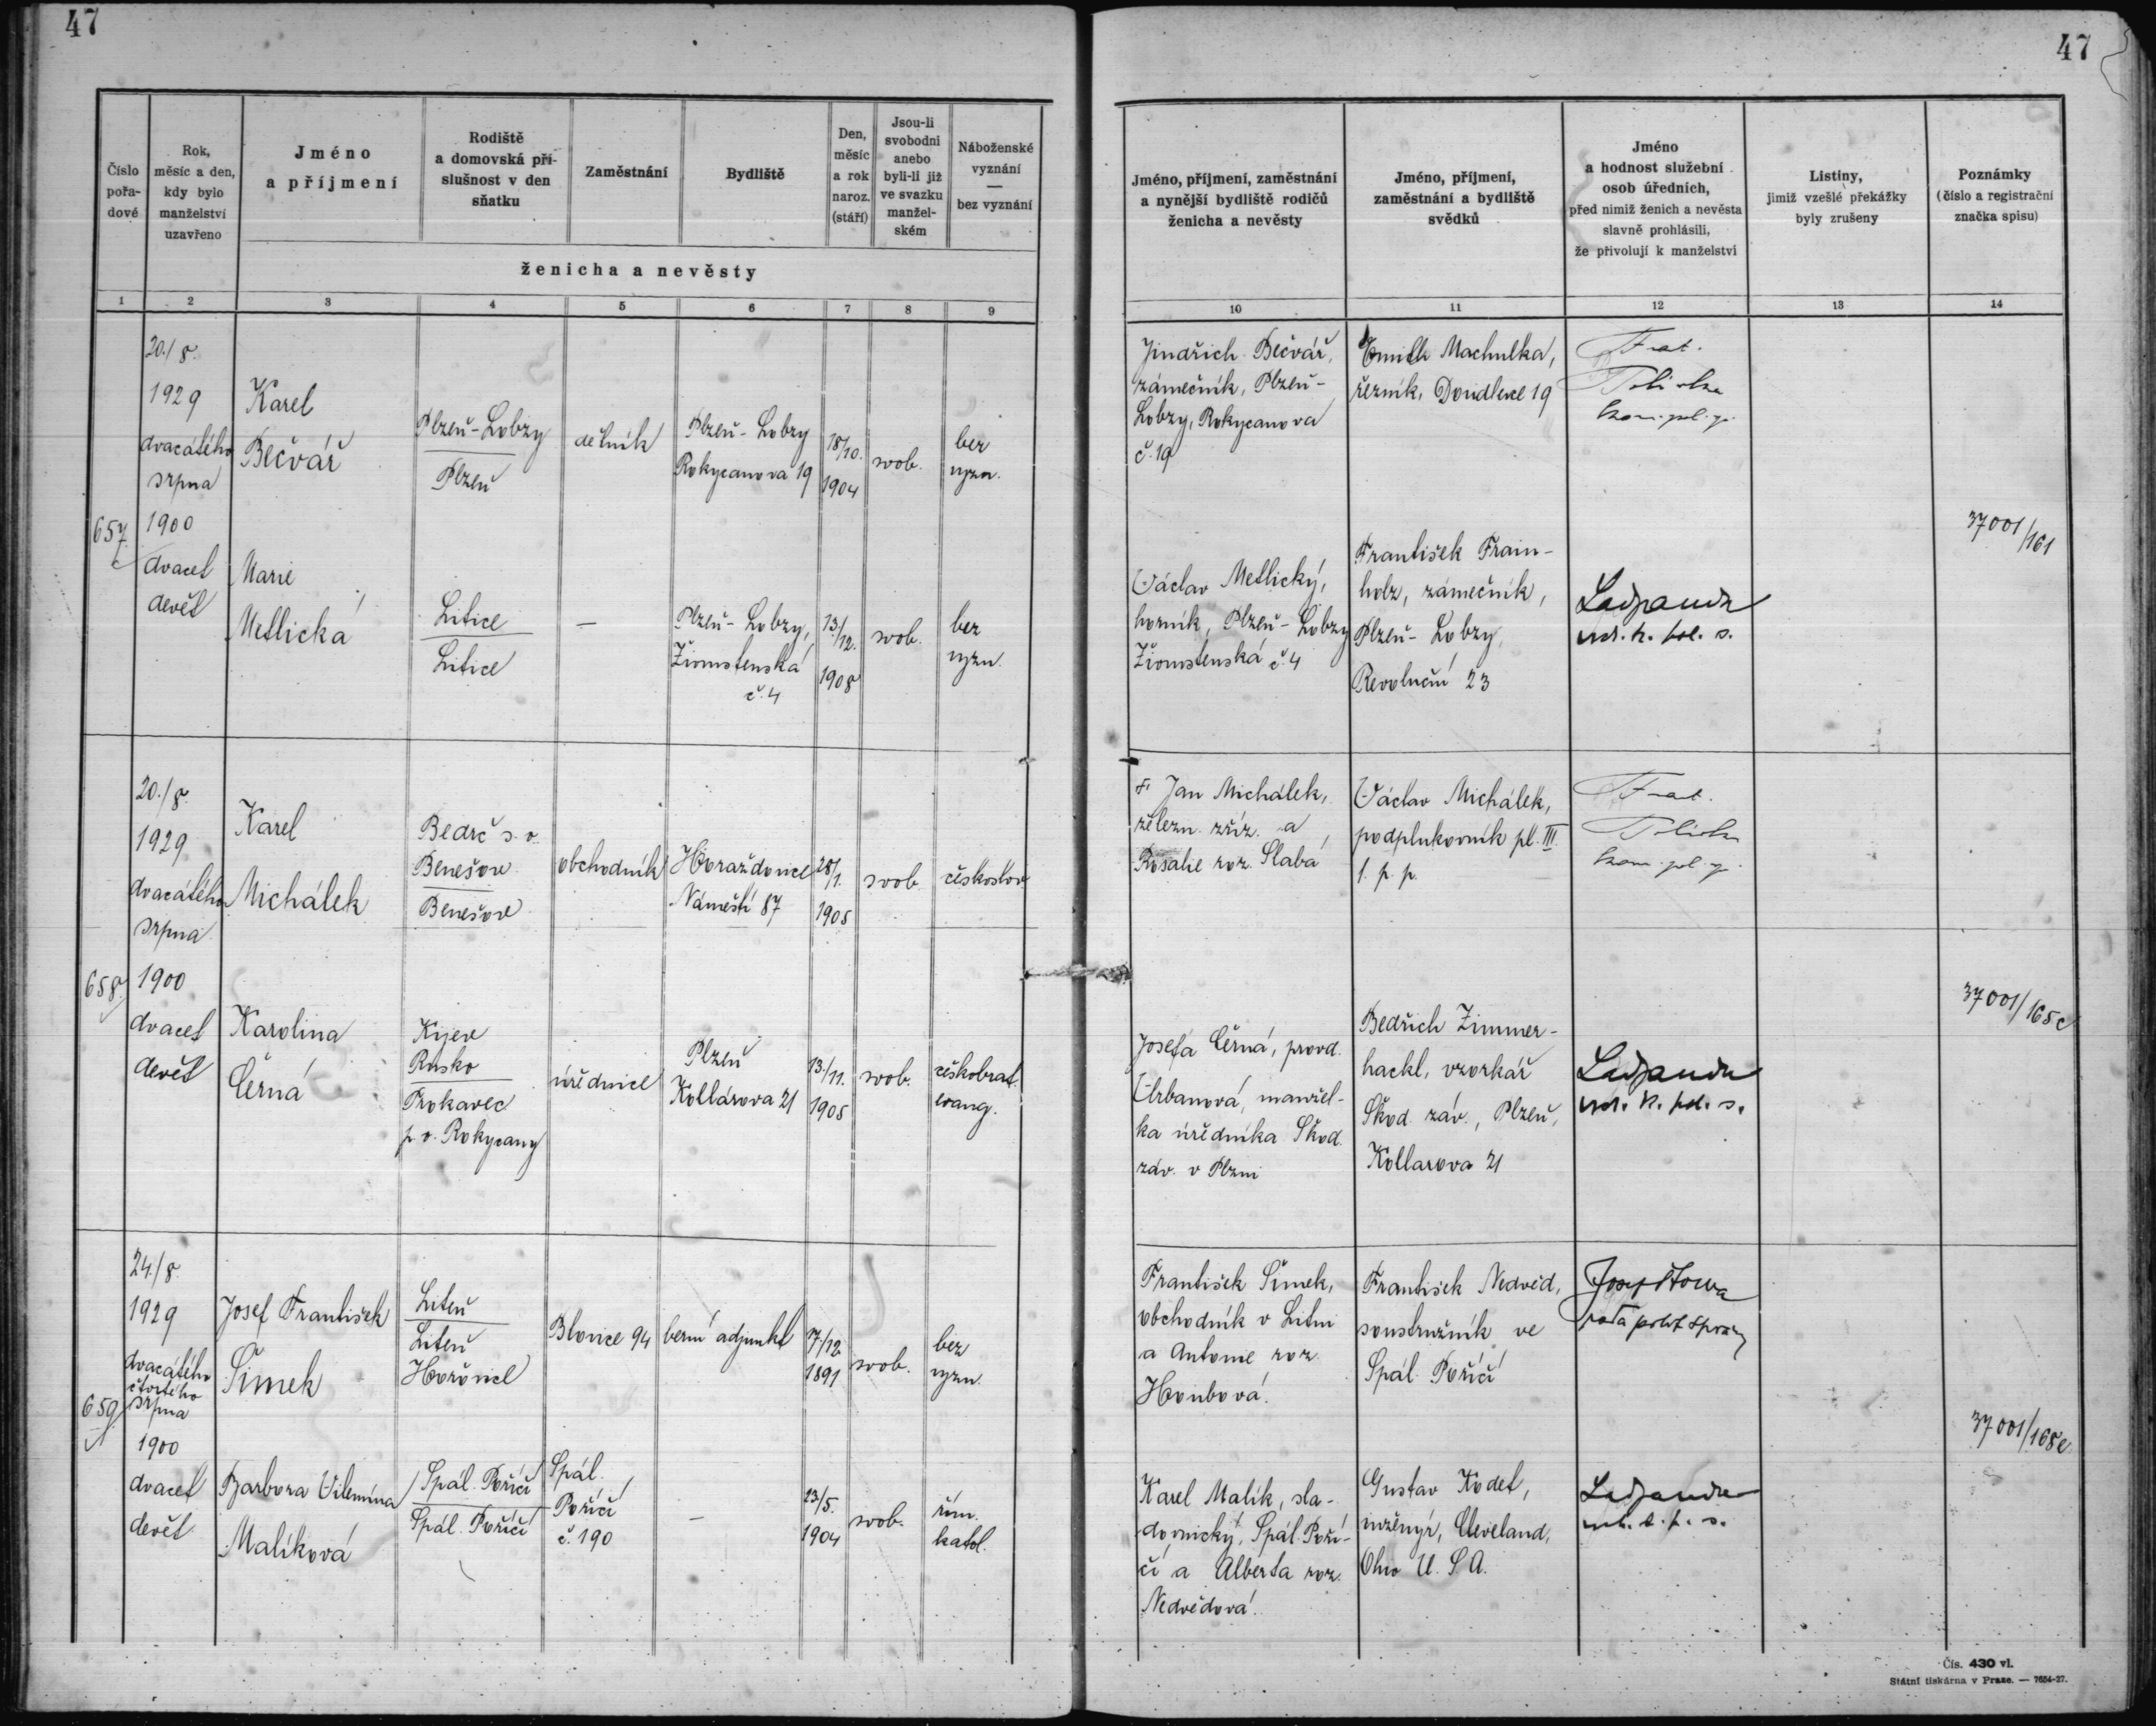 47
47
Číslo pořa- dové
Rok, měsíc a den, kdy bylo manželství uzavřeno
Jméno a příjmení
Rodiště a domovská pří- slušnost v den sňatku
Zaměstnání
Bydliště
Den, měsíc a rok naroz. (stáří)
Jsou-li svobodni anebo byli-li již ve svazku manžel- ském
Náboženské vyznání — bez vyznání
ženicha a nevěsty
Jméno, příjmení, zaměstnání a nynější bydliště rodičů ženicha a nevěsty
Jméno, příjmení, zaměstnání a bydliště svědků
Jméno a hodnost služební osob úředních, před nimiž ženich a nevěsta slavně prohlásili, že přivolují k manželství
Listiny, jimiž vzešlé překážky byly zrušeny
Poznámky (číslo a registrační značka spisu)
1 2 3 4 5 6 7 8 9 10 11 12 13 14
657
20./8.
1929
dvacátého
srpna
1900
dvacet
devět
Karel
Bečvář
Plzeň-Lobzy
Plzeň
dělník
Plzeň-Lobzy
Rokycanova 19
18/10.
1904
svob.
bez
vyzn.
Jindřich Bečvář,
zámečník, Plzeň-
Lobzy, Rokycanova
č. 19
Machulka,
řezník, Doudlevce 19
Marie
Metlická
Litice
Litice
—
Plzeň-Lobzy,
Živnostenská
č. 4
13./12.
1908
svob.
bez
vyzn.
Václav Metlický,
horník, Plzeň-Lobzy
Živnostenská č. 4
František Frain-
holz, zámečník,
Plzeň-Lobzy,
Revoluční 23
37001/161
658
20./8.
1929
dvacátého
srpna
1900
dvacet
devět
Karel
Michálek
Bedrč s. o.
Benešov
Benešov
obchodník
Horažďovice
Náměstí 87
28/1.
1905
svob.
českoslov.
Jan Michálek,
železn. zříz. a
Rosalie roz. Slabá
Václav Michálek,
podplukovník pl. III.
1. p. p.
Karolina
Černá
Kijev
Rusko
Trokavec
p. o. Rokycany
úřednice
Plzeň
Kollárova 21
13./11.
1905
svob.
českobrat.
evang.
Josefa Černá, provd.
Urbanová, manžel-
ka úředníka Škod.
záv. v Plzni
Bedřich Zimmer-
hackl, vzorkář
Škod. záv., Plzeň,
Kollarova 21
37001/165c
659
24./8.
1929
dvacátého
čtvrtého
srpna
1900
dvacet
devět
Josef František
Šimek
Liteň
Liteň
Hořovice
Blovice 94
berní adjunkt
7/12.
1891
svob.
bez
vyzn.
František Šimek,
obchodník v Litni
a Antonie roz.
Houbová.
František Nedvěd,
soustružník ve
Spál. Poříčí
Barbora Vilemína
Malíková
Spál. Poříčí
Spál. Poříčí
Spál.
Poříčí
č. 190
—
23/5.
1904
svob.
řím.
katol.
Karel Malík, sla-
dovnický, Spál. Poří-
čí a Alberta roz.
Nedvědová.
Gustav Kodet,
inženýr, Cleveland,
Ohio U. S. A.
37001/168e
Čís. 430 vl.
Státní tiskárna v Praze. — 7654-27.